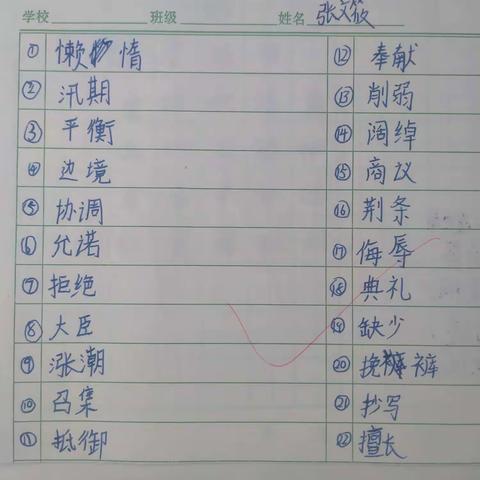 学校 班级 姓名 张文筱
① 懒惰
② 汛期
③ 平衡
④ 边境
⑤ 协调
⑥ 允诺
⑦ 拒绝
⑧ 大臣
⑨ 涨潮
⑩ 召集
⑪ 抵御
⑫ 奉献
⑬ 削弱
⑭ 阔绰
⑮ 商议
⑯ 荆条
⑰ 侮辱
⑱ 典礼
⑲ 缺少
⑳ 挽裤
㉑ 抄写
㉒ 擅长